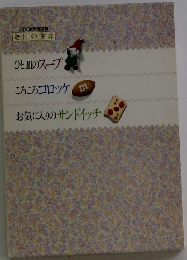 ひと皿のスープ
ころころコロッケ
お気に入りのサンドイッチ